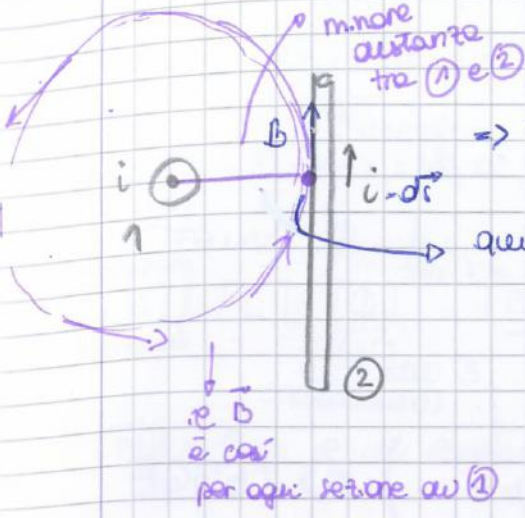 minore
distanza
tra ① e ②
B
=>
i
i · ds
1
②
e B
è così
per ogni sezione di ①